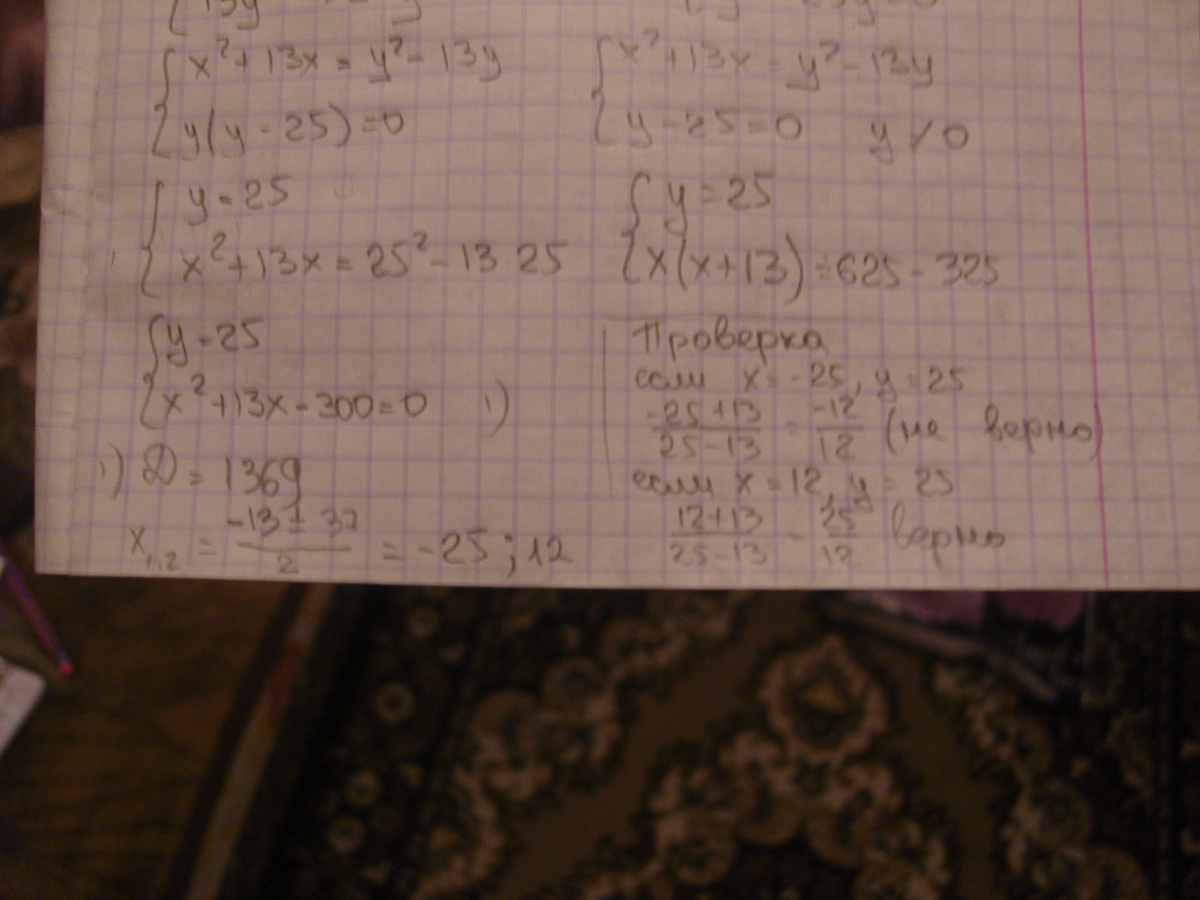 x² + 13x = y² - 13y
y(y - 25) = 0
x² + 13x = y² - 13y
y - 25 = 0 y ≠ 0
y = 25
x² + 13x = 25² - 13 25
y = 25
x(x + 13) = 625 - 325
y = 25
x² + 13x - 300 = 0 1)
1) D = 1369
x₁,₂ = (-13 ± 37)/2 = -25; 12
Проверка
если x = -25, y = 25
(-25 + 13)/(25 - 13) = -12/12 (не верно)
если x = 12, y = 25
(12 + 13)/(25 - 13) = 25/12 верно